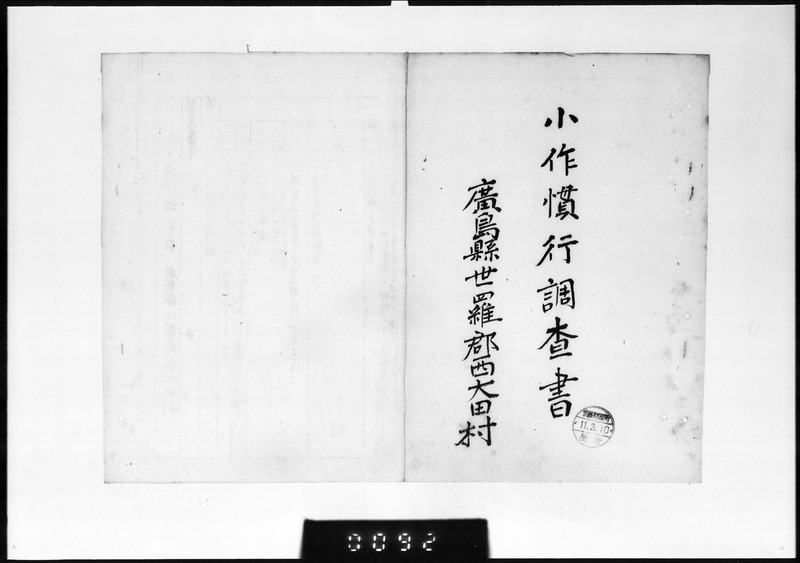 小作慣行調査書
廣島縣世羅郡西大田村
11.3.10
0092